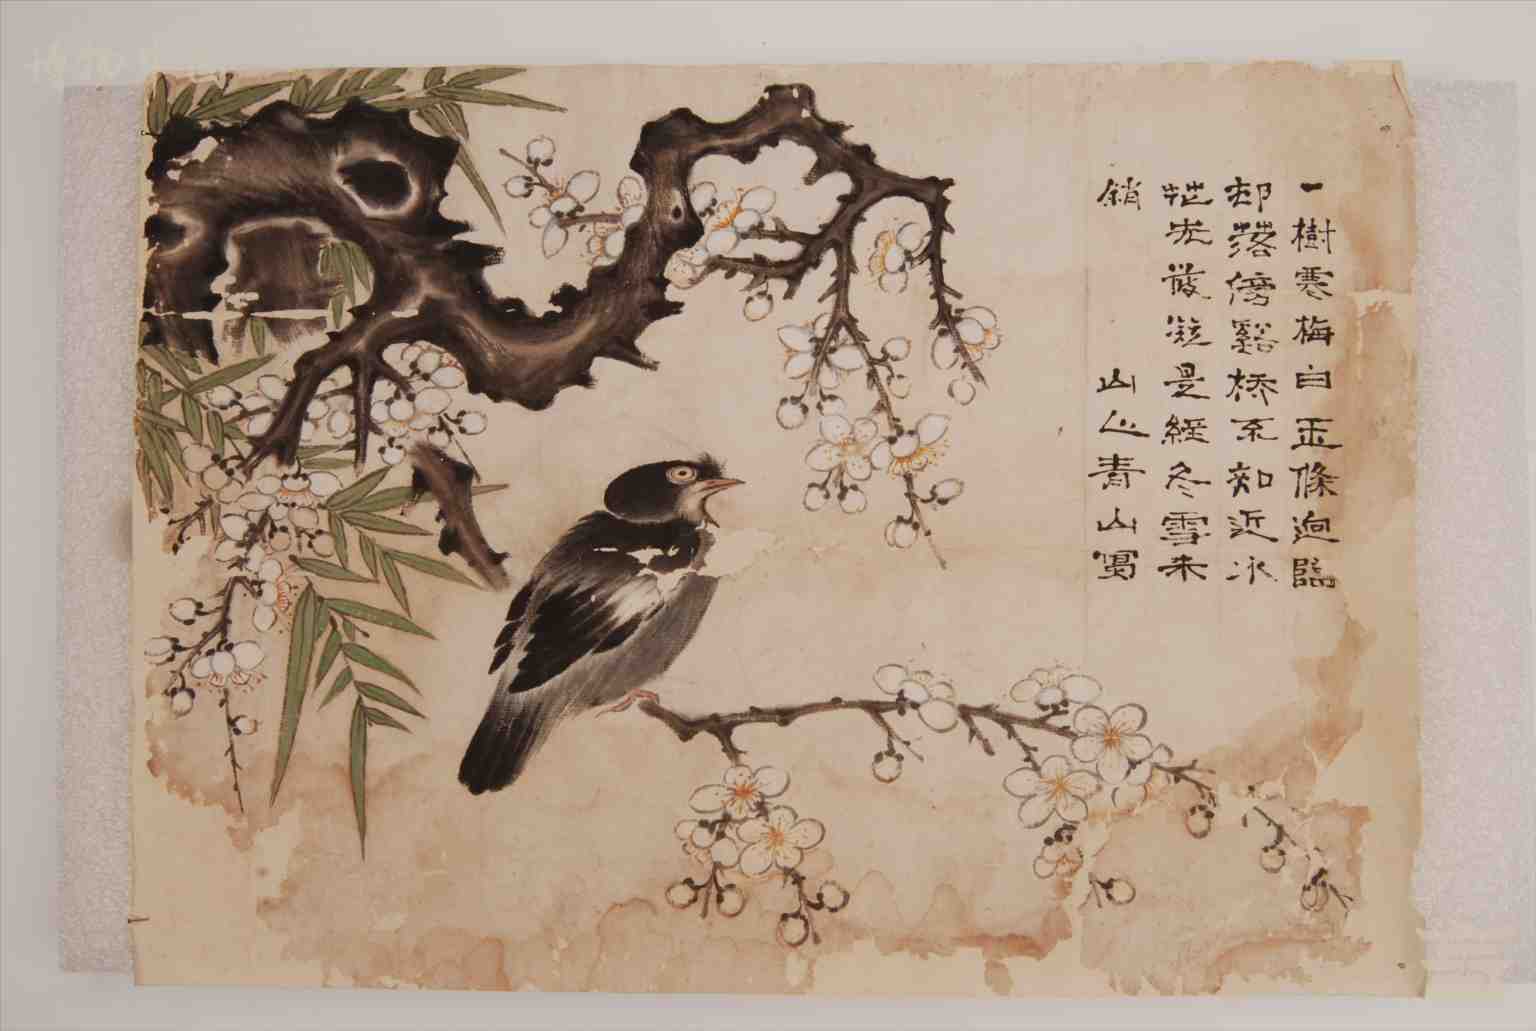 一樹寒梅白玉條迥臨
邨落傍谿橋不知近水
花先發凝是經冬雪未
銷　山人青山寫